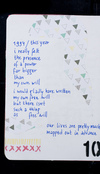 1997 / this year
i really felt
the presence
of a power
far bigger
than
my own will
i would gladly have written
my own free will
but there isn't
such a thing
as free will
our lives are pretty much
mapped out in advance
10